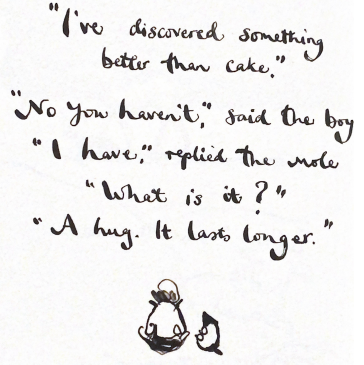 "I've discovered something
better than cake."
"No you haven't," said the boy
"I have," replied the mole
"What is it?"
"A hug. It lasts longer."